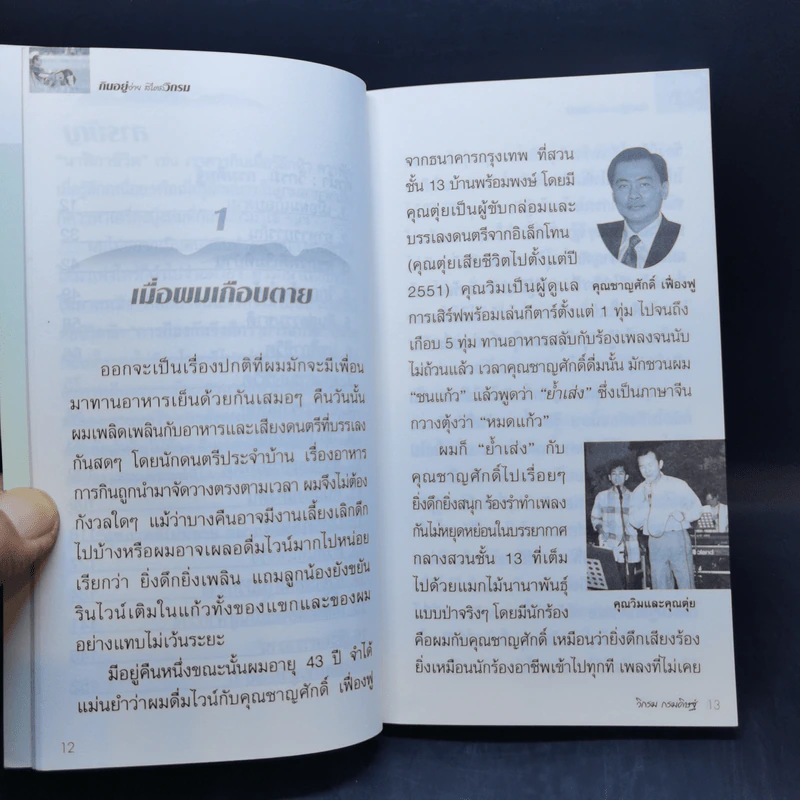 กินอยู่อย่าง ชีไลน์วิกรม
1
เมื่อผมเกือบตาย
ออกจะเป็นเรื่องปกติที่ผมมักจะมีเพื่อน
มาทานอาหารเย็นด้วยกันเสมอๆ คืนวันนั้น
ผมเพลิดเพลินกับอาหารและเสียงดนตรีที่บรรเลง
กันสดๆ โดยนักดนตรีประจำบ้าน เรื่องอาหาร
การกินถูกนำมาจัดวางตรงตามเวลา ผมจึงไม่ต้อง
กังวลใดๆ แม้ว่าบางคืนอาจมีงานเลี้ยงเลิกดึก
ไปบ้างหรือผมอาจเผลอดื่มไวน์มากไปหน่อย
เรียกว่า ยิ่งดึกยิ่งเพลิน แถมลูกน้องยังขยัน
รินไวน์เติมในแก้วทั้งของแขกและของผม
อย่างแทบไม่เว้นระยะ
มีอยู่คืนหนึ่งขณะนั้นผมอายุ 43 ปี จำได้
แม่นยำว่าผมดื่มไวน์กับคุณชาญศักดิ์ เฟื่องฟู
12
จากธนาคารกรุงเทพ ที่สวน
ชั้น 13 บ้านพร้อมพงษ์ โดยมี
คุณตุ่ยเป็นผู้ขับกล่อมและ
บรรเลงดนตรีจากอิเล็กโทน
(คุณตุ่ยเสียชีวิตไปตั้งแต่ปี
2551) คุณวิมเป็นผู้ดูแล
คุณชาญศักดิ์ เฟื่องฟู
การเสิร์ฟพร้อมเล่นกีตาร์ตั้งแต่ 1 ทุ่ม ไปจนถึง
เกือบ 5 ทุ่ม ทานอาหารสลับกับร้องเพลงจนนับ
ไม่ถ้วนแล้ว เวลาคุณชาญศักดิ์ดื่มนั้น มักชวนผม
“ชนแก้ว” แล้วพูดว่า “ย้ำเส่ง” ซึ่งเป็นภาษาจีน
กวางตุ้งว่า “หมดแก้ว”
ผมก็ “ย้ำเส่ง” กับ
คุณชาญศักดิ์ไปเรื่อยๆ
ยิ่งดึกยิ่งสนุก ร้องรำทำเพลง
กันไม่หยุดหย่อนในบรรยากาศ
กลางสวนชั้น 13 ที่เต็ม
ไปด้วยแมกไม้นานาพันธุ์
แบบป่าจริงๆ โดยมีนักร้อง
Roland
คุณวิมและคุณตุ่ย
คือผมกับคุณชาญศักดิ์ เหมือนว่ายิ่งดึกเสียงร้อง
ยิ่งเหมือนนักร้องอาชีพเข้าไปทุกที เพลงที่ไม่เคย
วิกรม กรมดิษฐ์ 13